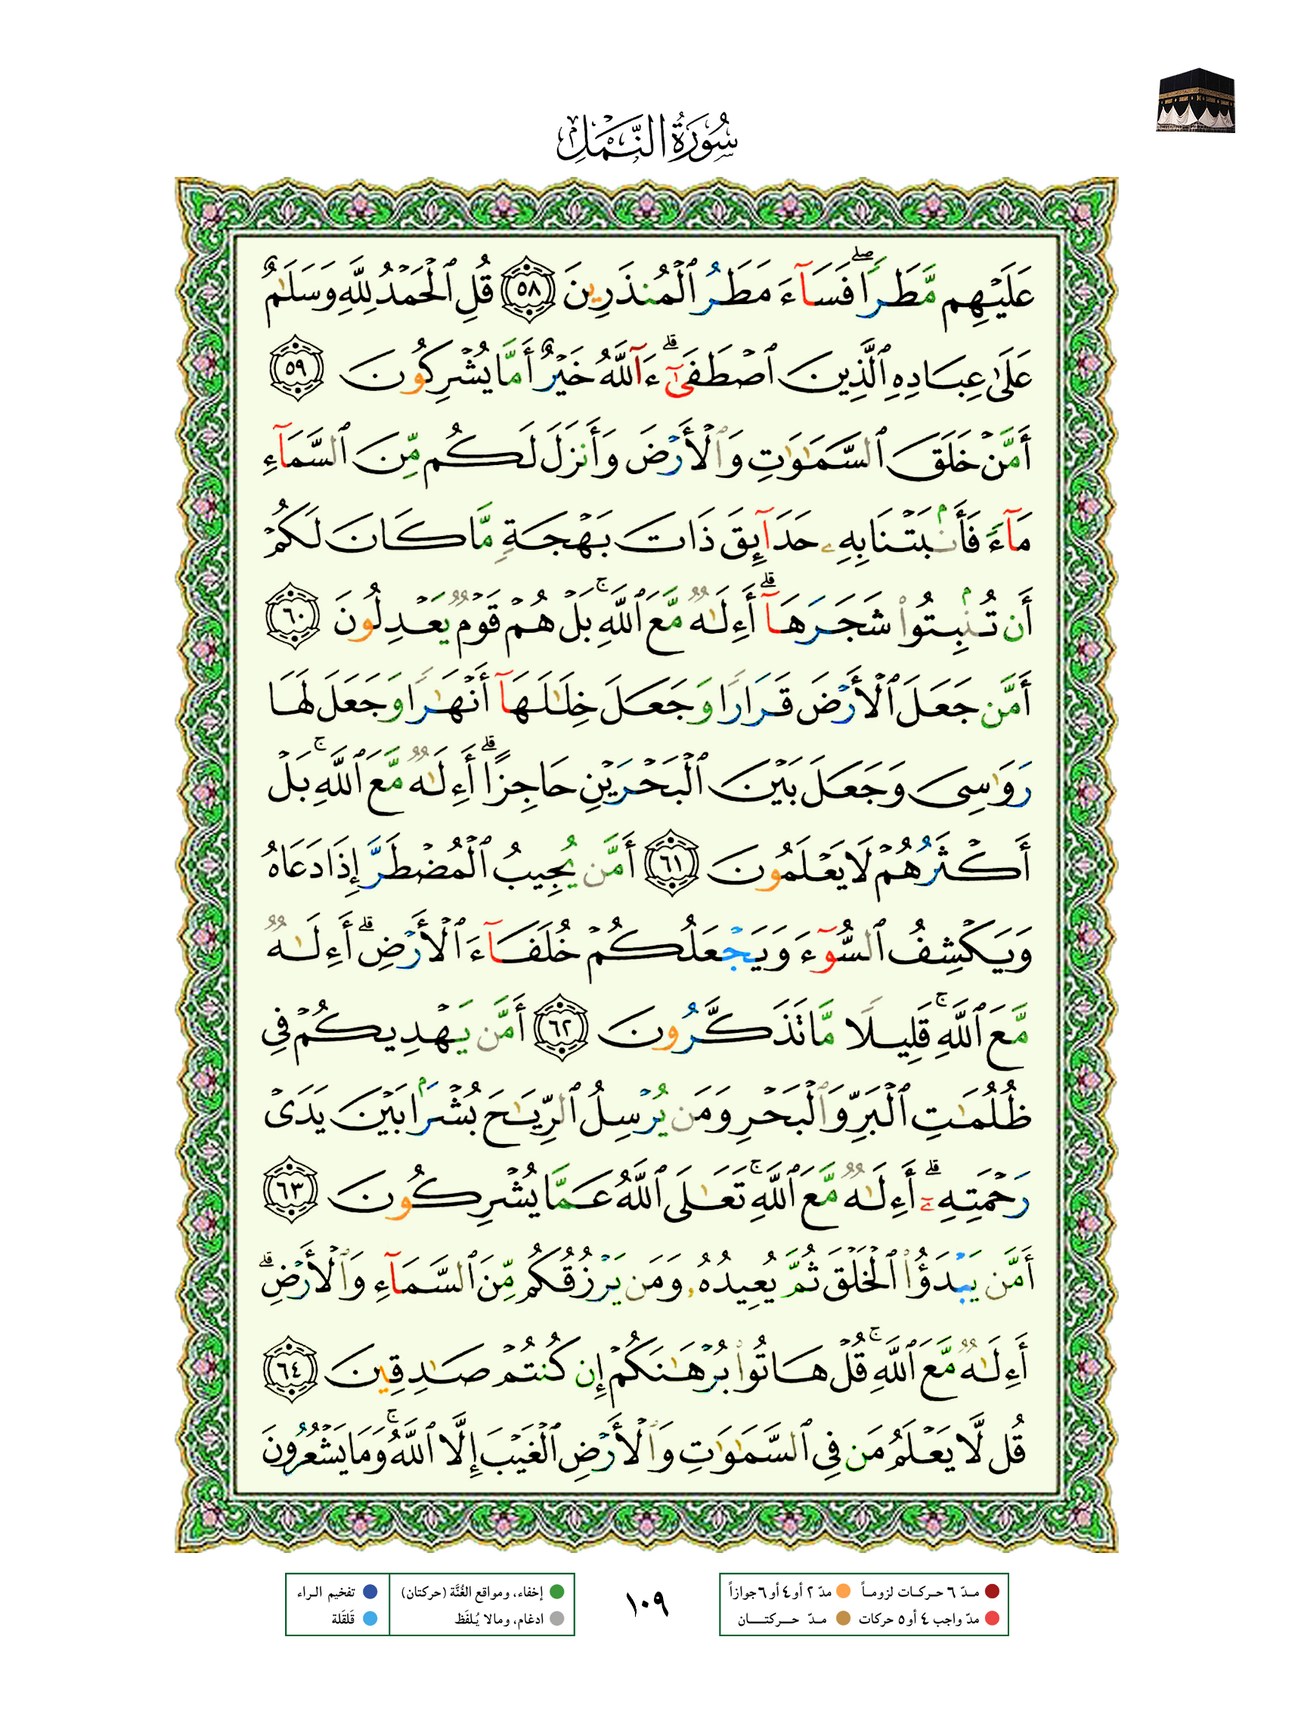 سُورَةُ النَّمْلِ
عَلَيْهِم مَّطَرًا ۖ فَسَآءَ مَطَرُ ٱلْمُنذَرِينَ ٥٨ قُلِ ٱلْحَمْدُ لِلَّهِ وَسَلَٰمٌ
عَلَىٰ عِبَادِهِ ٱلَّذِينَ ٱصْطَفَىٰٓ ۗ ءَآللَّهُ خَيْرٌ أَمَّا يُشْرِكُونَ ٥٩
أَمَّنْ خَلَقَ ٱلسَّمَٰوَٰتِ وَٱلْأَرْضَ وَأَنزَلَ لَكُم مِّنَ ٱلسَّمَآءِ
مَآءً فَأَنۢبَتْنَا بِهِۦ حَدَآئِقَ ذَاتَ بَهْجَةٍ مَّا كَانَ لَكُمْ
أَن تُنۢبِتُوا۟ شَجَرَهَآ ۗ أَءِلَٰهٌ مَّعَ ٱللَّهِ ۚ بَلْ هُمْ قَوْمٌ يَعْدِلُونَ ٦٠
أَمَّن جَعَلَ ٱلْأَرْضَ قَرَارًا وَجَعَلَ خِلَٰلَهَآ أَنْهَٰرًا وَجَعَلَ لَهَا
رَوَٰسِىَ وَجَعَلَ بَيْنَ ٱلْبَحْرَيْنِ حَاجِزًا ۗ أَءِلَٰهٌ مَّعَ ٱللَّهِ ۚ بَلْ
أَكْثَرُهُمْ لَا يَعْلَمُونَ ٦١ أَمَّن يُجِيبُ ٱلْمُضْطَرَّ إِذَا دَعَاهُ
وَيَكْشِفُ ٱلسُّوٓءَ وَيَجْعَلُكُمْ خُلَفَآءَ ٱلْأَرْضِ ۗ أَءِلَٰهٌ
مَّعَ ٱللَّهِ ۚ قَلِيلًا مَّا تَذَكَّرُونَ ٦٢ أَمَّن يَهْدِيكُمْ فِى
ظُلُمَٰتِ ٱلْبَرِّ وَٱلْبَحْرِ وَمَن يُرْسِلُ ٱلرِّيَٰحَ بُشْرًۢا بَيْنَ يَدَىْ
رَحْمَتِهِۦٓ ۗ أَءِلَٰهٌ مَّعَ ٱللَّهِ ۚ تَعَٰلَى ٱللَّهُ عَمَّا يُشْرِكُونَ ٦٣
أَمَّن يَبْدَؤُا۟ ٱلْخَلْقَ ثُمَّ يُعِيدُهُۥ وَمَن يَرْزُقُكُم مِّنَ ٱلسَّمَآءِ وَٱلْأَرْضِ ۗ
أَءِلَٰهٌ مَّعَ ٱللَّهِ ۚ قُلْ هَاتُوا۟ بُرْهَٰنَكُمْ إِن كُنتُمْ صَٰدِقِينَ ٦٤
قُل لَّا يَعْلَمُ مَن فِى ٱلسَّمَٰوَٰتِ وَٱلْأَرْضِ ٱلْغَيْبَ إِلَّا ٱللَّهُ ۚ وَمَا يَشْعُرُونَ
مدّ ٦ حركات لزوماً مدّ ٢ أو ٤ أو ٦ جوازاً
مدّ واجب ٤ أو ٥ حركات مدّ حركتان
١٠٩
إخفاء، ومواقع الغُنَّة (حركتان) تفخيم الراء
ادغام، ومالا يُلفَظ قَلقَلة